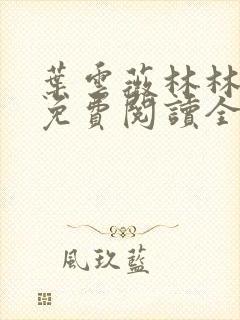 葉雲薇林林
免費閱讀全
風玖藍